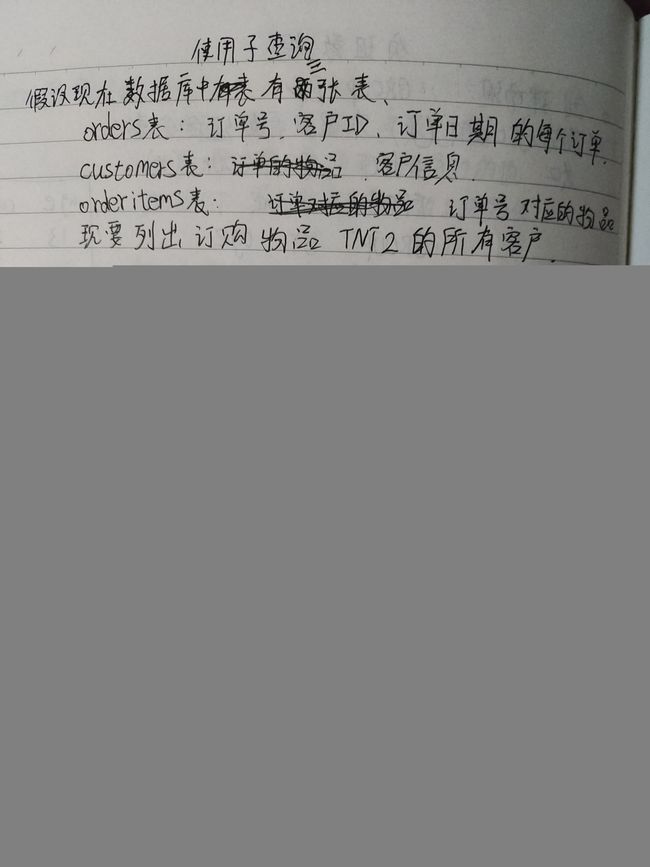 使用子查询
假设现在数据库中有两张表、
orders表：订单号、客户ID、订单日期的每个订单.
customers表：客户信息.
orderitems表：订单号对应的物品
现要列出订购物品 TNT2 的所有客户.